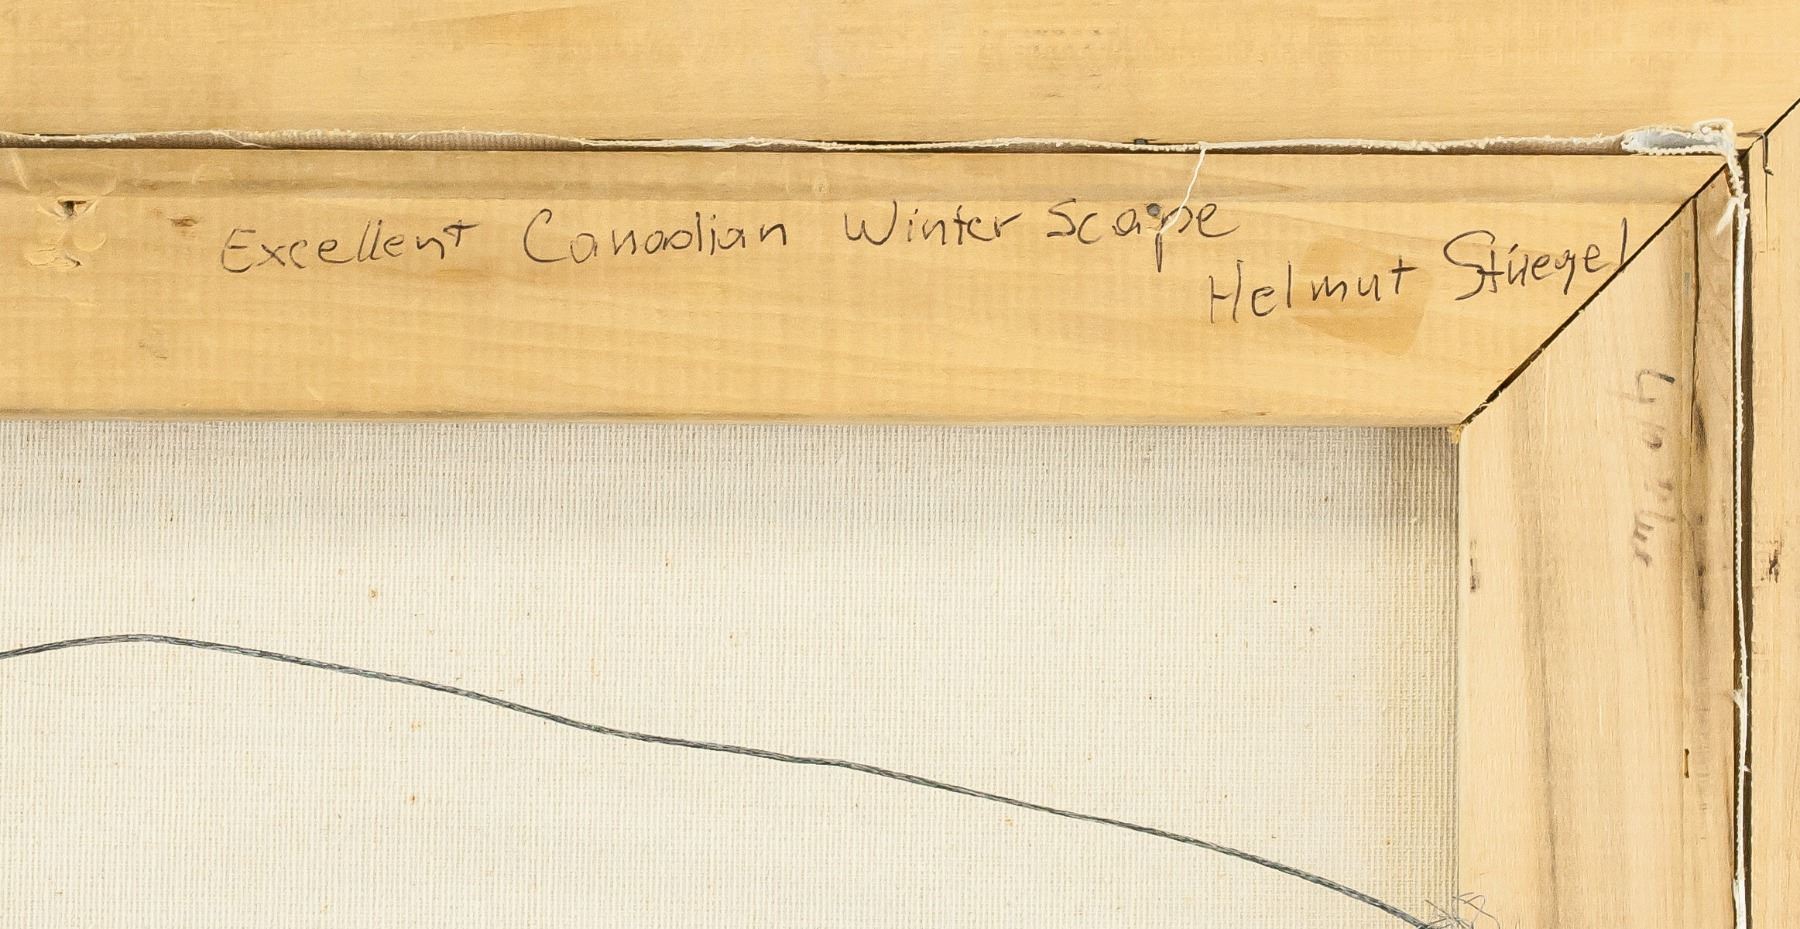 Excellent Canadian Winter Scape
Helmut Stüegel